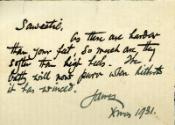 Sweetie,
As these are harder
than your feet, so much are they
softer than high heels. The
betty will now purr when hitherto
it has winced.
James
Xmas 1931.